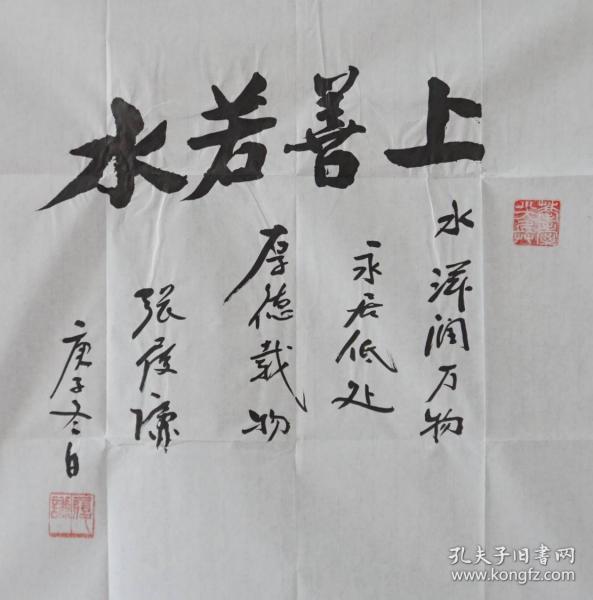 上善若水
水滋润万物
永居低处
厚德载物
张
庚子冬日
孔夫子旧书网
www.kongfz.com